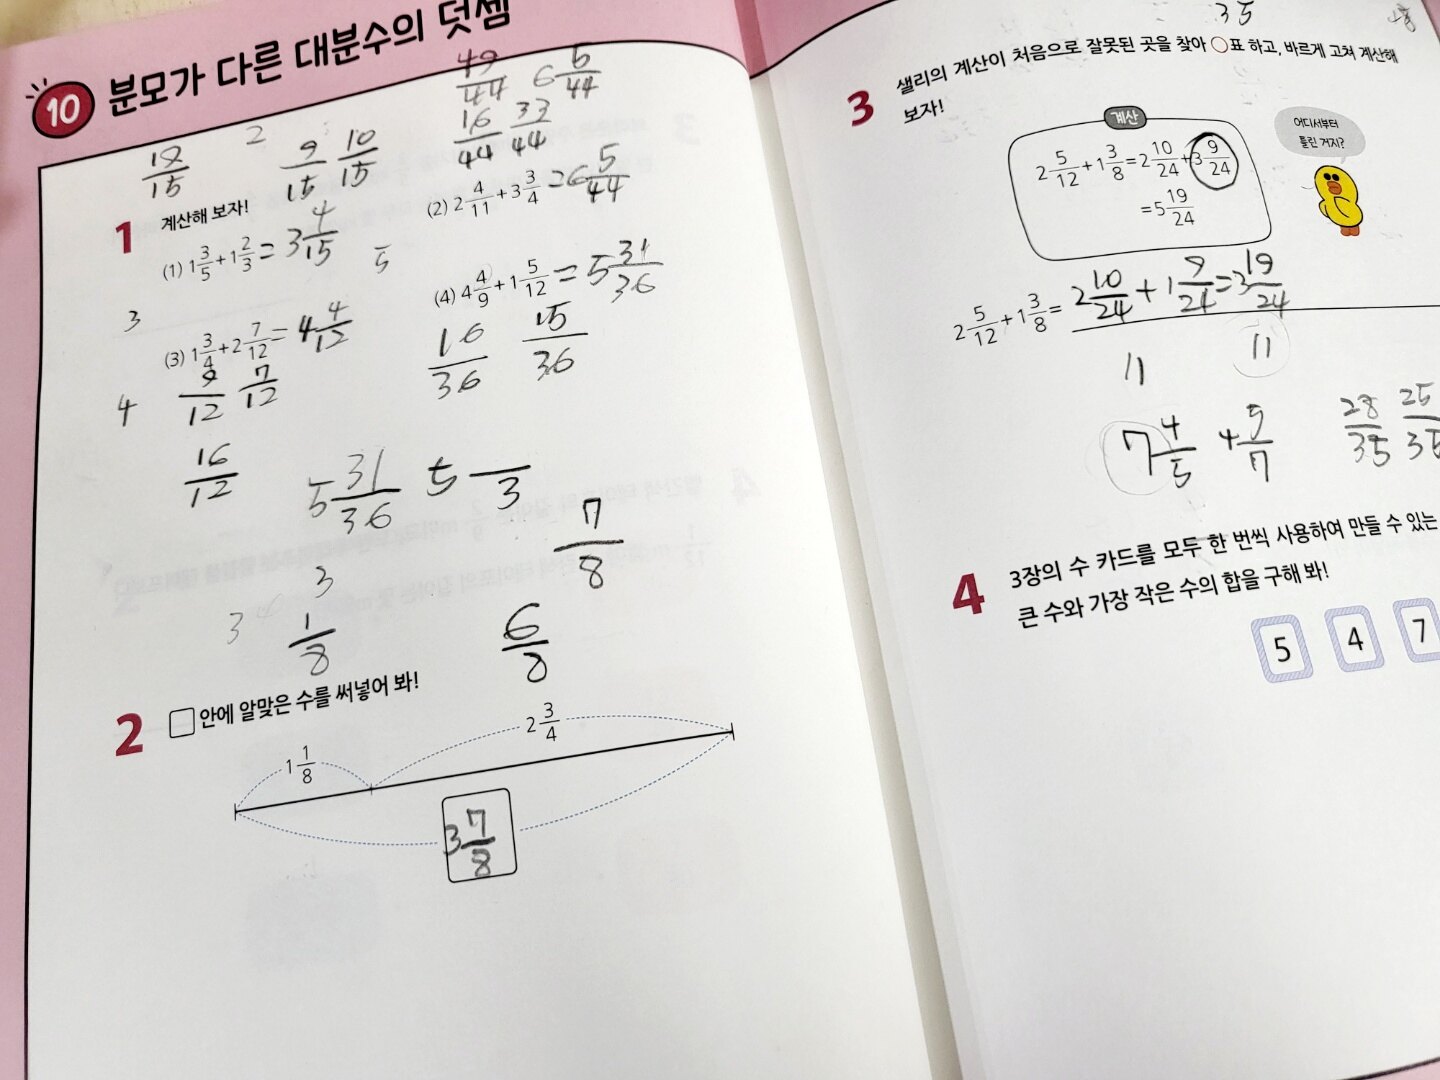 10 분모가 다른 대분수의 덧셈
49/44 6 6/44
2
19/15 9/15 10/15 16/44 33/44
1 계산해 보자!
(1) 1 3/5 + 1 2/3 = 3 4/15
(2) 2 4/11 + 3 3/4 = 6 5/44
5
3
(3) 1 3/4 + 2 7/12 = 4 4/12
(4) 4 4/9 + 1 5/12 = 5 31/36
4 9/12 7/12
16/36 15/36
16/12
5 31/36 5 /3
7/8
3
3 1/8
6/8
2 □ 안에 알맞은 수를 써넣어 봐!
1 1/8 2 3/4
3 7/8
35
3 샐리의 계산이 처음으로 잘못된 곳을 찾아 ○표 하고, 바르게 고쳐 계산해
보자!
계산
2 5/12 + 1 3/8 = 2 10/24 + 3 9/24
= 5 19/24
어디서부터
틀린 거지?
2 5/12 + 1 3/8 = 2 10/24 + 1 9/24 = 3 19/24
11 11
7 4/5 + 4 5/7
28/35 25/35
4 3장의 수 카드를 모두 한 번씩 사용하여 만들 수 있는
큰 수와 가장 작은 수의 합을 구해 봐!
5 4 7